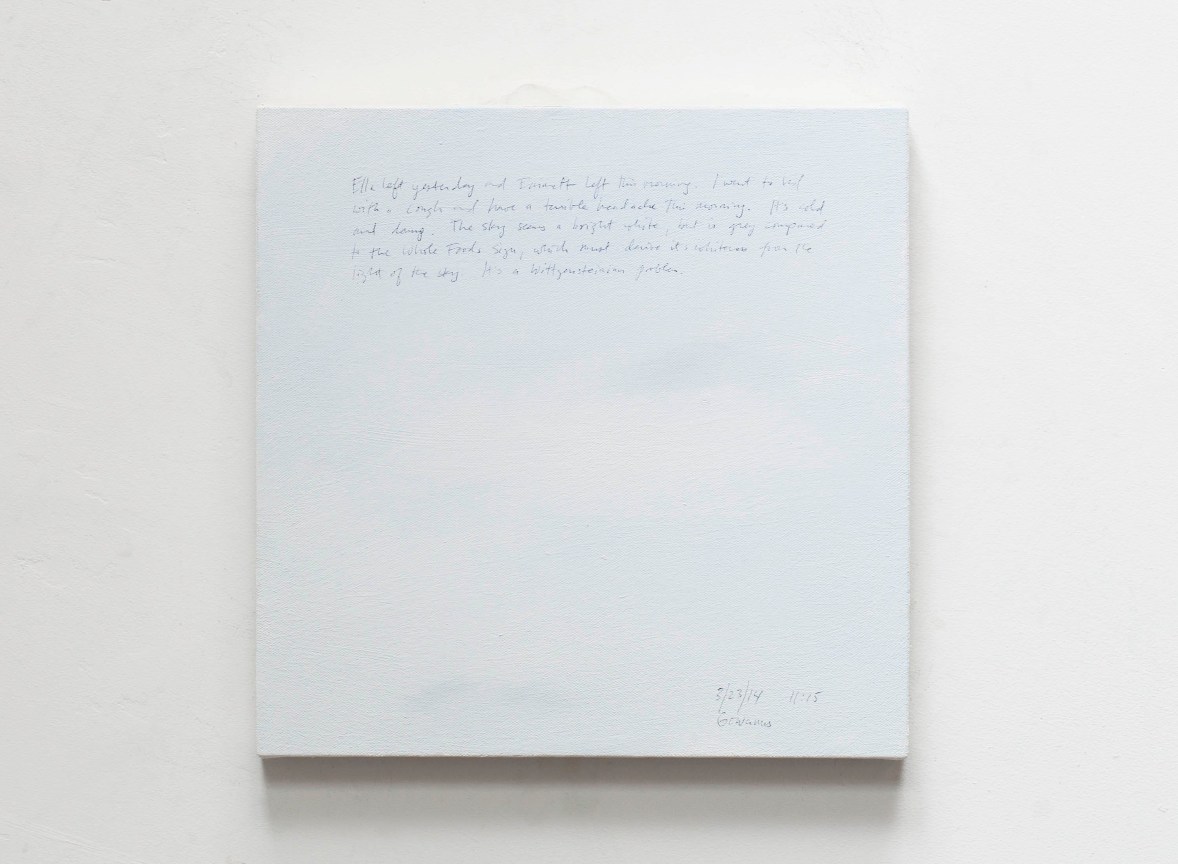 Ella left yesterday and Emmett left this morning. I went to bed
with a cough and have a terrible headache this morning. It's cold
and damp. The sky seems a bright white, but is grey compared
to the Whole Foods sign, which must derive its whiteness from the
light of the sky. It's a Wittgensteinian problem.
3/23/14 11:15
Gowanus